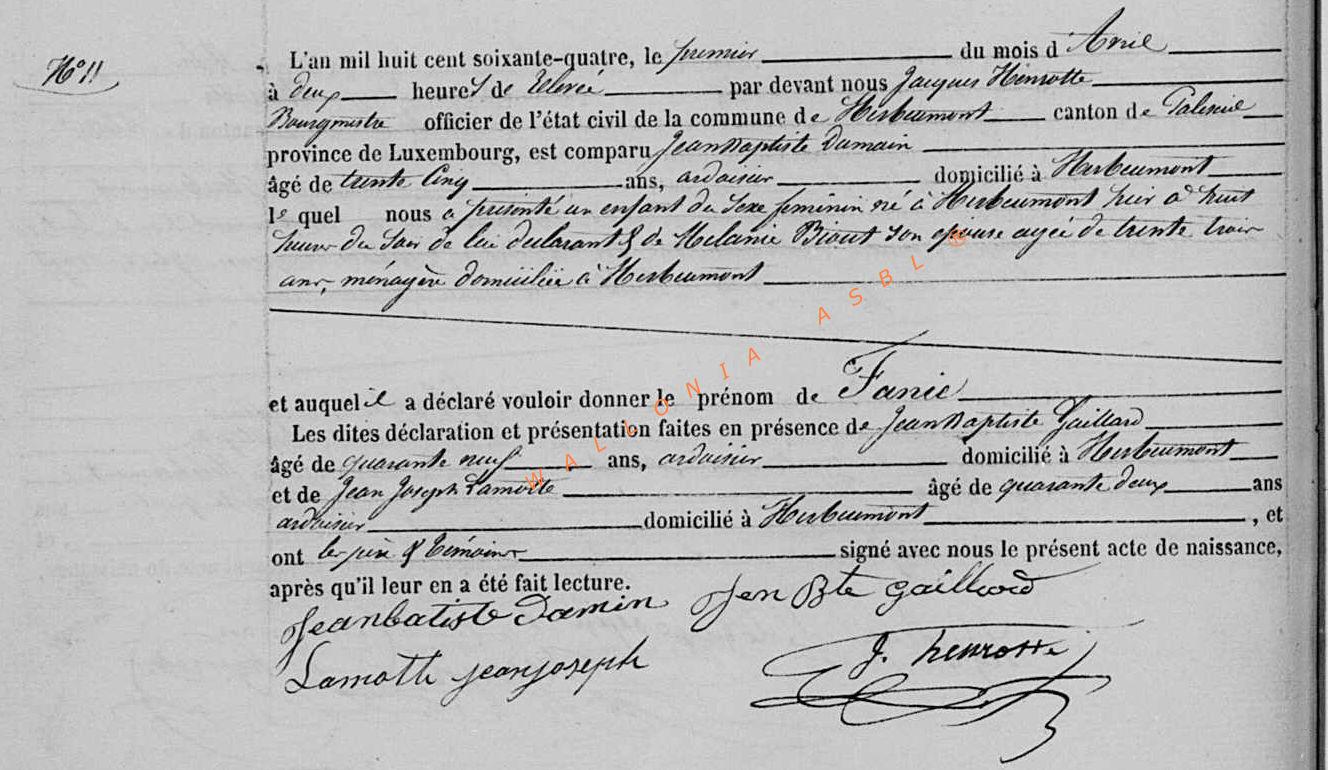 N° 11
L'an mil huit cent soixante-quatre, le premier du mois d'Avril
à deux heures de Relevée par devant nous Jacques Henrotte
Bourgmestre officier de l'état civil de la commune de Herbeumont canton de Paliseul
province de Luxembourg, est comparu Jean Baptiste Damain
âgé de trente cinq ans, ardoisier domicilié à Herbeumont
le quel nous a présenté un enfant du sexe feminin né à Herbeumont hier à huit
heures du soir de lui déclarant & de Mélanie Biout son épouse agée de trente trois
ans, ménagère domiciliée à Herbeumont
et auquel il a déclaré vouloir donner le prénom de Fanie
Les dites déclaration et présentation faites en présence de Jean Baptiste Gaillard
âgé de quarante neuf ans, ardoisier domicilié à Herbeumont
et de Jean Joseph Lamotte âgé de quarante deux ans
ardoisier domicilié à Herbeumont, et
ont les père & témoins signé avec nous le présent acte de naissance,
après qu'il leur en a été fait lecture.
Jeanbatiste Damin Jen Bte gailliard
Lamotte jean joseph J. henrotte
WALLONIA ASBL ®